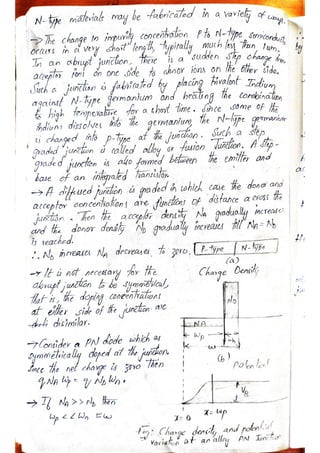 N-type materials may be fabricated in a variety of ways.
→ The change in impurity concentration P to N-type semiconductor
occurs in a very short length, typically much less than 1um.
In an abrupt junction, there is a sudden step change from
acceptor ions on one side to donor ions on the other side.
Such a junction is fabricated by placing trivalent Indium
against N-type germanium and heating the combination
to high temperature for a short time. Since some of the
indium dissolves into the germanium, the N-type germanium
is changed into p-type at the junction. Such a step
graded junction is called alloy or fusion Junction. A step-
graded junction is also formed between the emitter and
base of an integrated transistor.
→ A diffused junction is graded in which case the donor and
acceptor concentrations are functions of distance across the
junction. Then the acceptor density NA gradually increases
and the donor density ND gradually increases till NA = ND
is reached.
∴ ND increases NA decreases to zero.
P-type N-type
(a)
→ It is not necessary for the
abrupt junction to be symmetrical,
that is, the doping concentrations
at either side of the junction are
dissimilar.
Charge Density
ND
NA
Wp
W
(b)
→ Consider a PN diode which is
symmetrically doped at the junction.
Since the net charge is zero then
qNAWp = qNDWn.
→ If NA >> ND then
Wp << Wn ≅ W
Potential
VB
x=0
x=Wp
Fig: Charge density and potential
variation at an alloy PN Junction